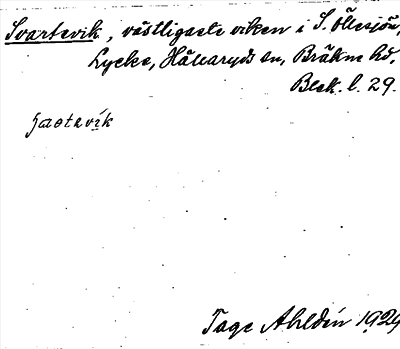 Svartevik, västligaste viken i S. Öllesjön,
Lycke, Hållaryds sn, Bräkne hd.
Blek. l. 29.
Tage Ahldén 1929